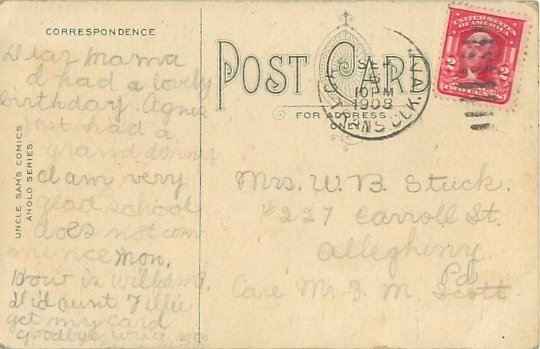 CORRESPONDENCE
POST CARD
FOR ADDRESS
ONLY
UNITED STATES
OF AMERICA
2 2
TWO CENTS
SEP
10 PM
1908
UNCLE SAMS COMICS
ANGLO SERIES
Dear Mama
I had a lovely
birthday. Agnes
just had a
grand dinner
I am very
glad school
does not com
mence Mon.
How is William?
Did aunt Tillie
get my card
Goodbye, write soon
Mrs. W. B. Stuck.
#227 Carroll St.
Allegheny
Pa
Care Mr. J. M. Scott